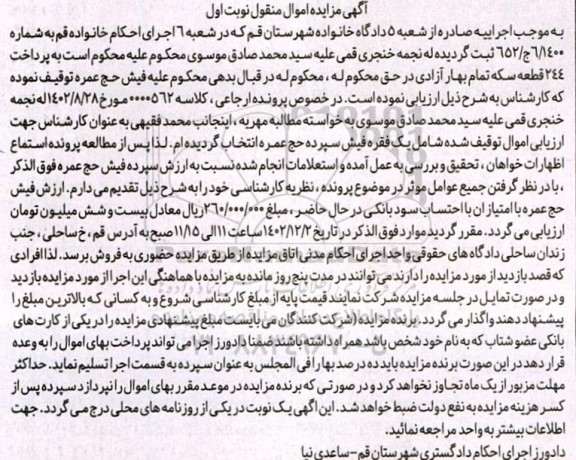 آگهی مزایده اموال منقول نوبت اول
به موجب اجراییه صادره از شعبه ۵ دادگاه خانواده شهرستان قم که در شعبه ۶ اجرای احکام خانواده قم به شماره
۶/۱۴۰۰ج/۶۵۲ ثبت گردیده له نجمه خنجری قمی علیه سید محمد صادق موسوی محکوم علیه محکوم است به پرداخت
۲۴۴ قطعه سکه تمام بهار آزادی در حق محکوم له ، محکوم له در قبال بدهی محکوم علیه فیش حج عمره توقیف نموده
که کارشناس به شرح ذیل ارزیابی نموده است. در خصوص پرونده ارجاعی ، کلاسه ۰۰۰۰۵۶۲ مورخ ۱۴۰۲/۸/۲۸ له نجمه
خنجری قمی علیه سید محمد صادق موسوی به خواسته مطالبه مهریه ، اینجانب محمد فقیهی به عنوان کارشناس جهت
ارزیابی اموال توقیف شده شامل یک فقره فیش سپرده حج عمره انتخاب گردیده ام . لذا پس از مطالعه پرونده استماع
اظهارات خواهان ، تحقیق و بررسی به عمل آمده و استعلامات انجام شده نسبت به ارزش سپرده فیش حج عمره فوق الذکر
، با در نظر گرفتن جمیع عوامل موثر در موضوع پرونده ، نظریه کارشناسی خود را به شرح ذیل تقدیم می دارم . ارزش فیش
حج عمره با امتیاز ان با احتساب سود بانکی در حال حاضر ، مبلغ ۲۶۰/۰۰۰/۰۰۰ ریال معادل بیست و شش میلیون تومان
ارزیابی می گردد. مقرر گردید موارد فوق الذکر در تاریخ ۱۴۰۲/۱۲/۲ ساعت ۱۱ الی ۱۱/۱۵ صبح به آدرس قم ، خ ساحلی ، جنب
زندان ساحلی دادگاه های حقوقی واحد اجرای احکام مدنی اتاق مزایده از طریق مزایده حضوری به فروش برسد. لذا افرادی
که قصد بازدید از مورد مزایده را دارند می توانند در مدت پنج روز مانده به مزایده با هماهنگی این اجرا از مورد مزایده بازدید
و در صورت تمایل در جلسه مزایده شرکت نمایند قیمت پایه از مبلغ کارشناسی شروع و به کسانی که بالاترین مبلغ را
پیشنهاد دهند واگذار می گردد. برنده مزایده (شرکت کنندگان می بایست مبلغ پیشنهادی مزایده را در یکی از کارت های
بانکی عضو شتاب که به نام خود شخص باشد همراه داشته باشند ضمنا دادورز اجرا می تواند پرداخت بهای اموال را به وعده
قرار دهد در این صورت برنده مزایده باید ده درصد بها را فی المجلس به عنوان سپرده به قسمت اجرا تسلیم نماید. حداکثر
مهلت مزبور از یک ماه تجاوز نخواهد کرد و در صورتی که برنده مزایده در موعد مقرر بهای اموال را نپردازد سپرده پس از
کسر هزینه مزایده به نفع دولت ضبط خواهد شد. این اگهی یک نوبت در یکی از روزنامه های محلی درج می گردد. جهت
اطلاعات بیشتر به واحد مراجعه نمائید.
دادورز اجرای احکام دادگستری شهرستان قم - ساعدی نیا